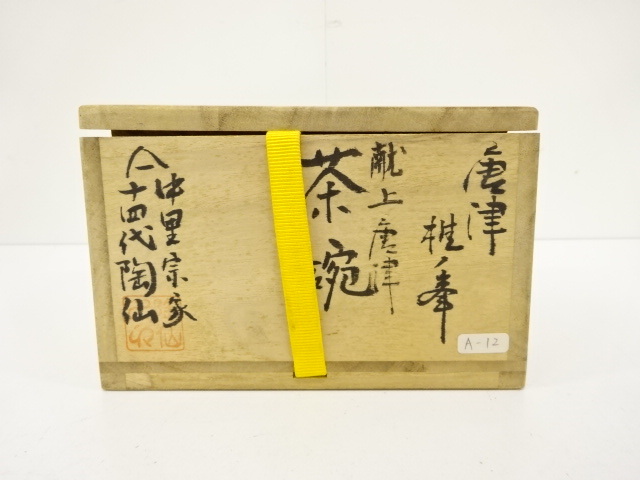 唐津
椎ノ峯
献上唐津
茶碗
中里宗家
十四代陶仙
A-12